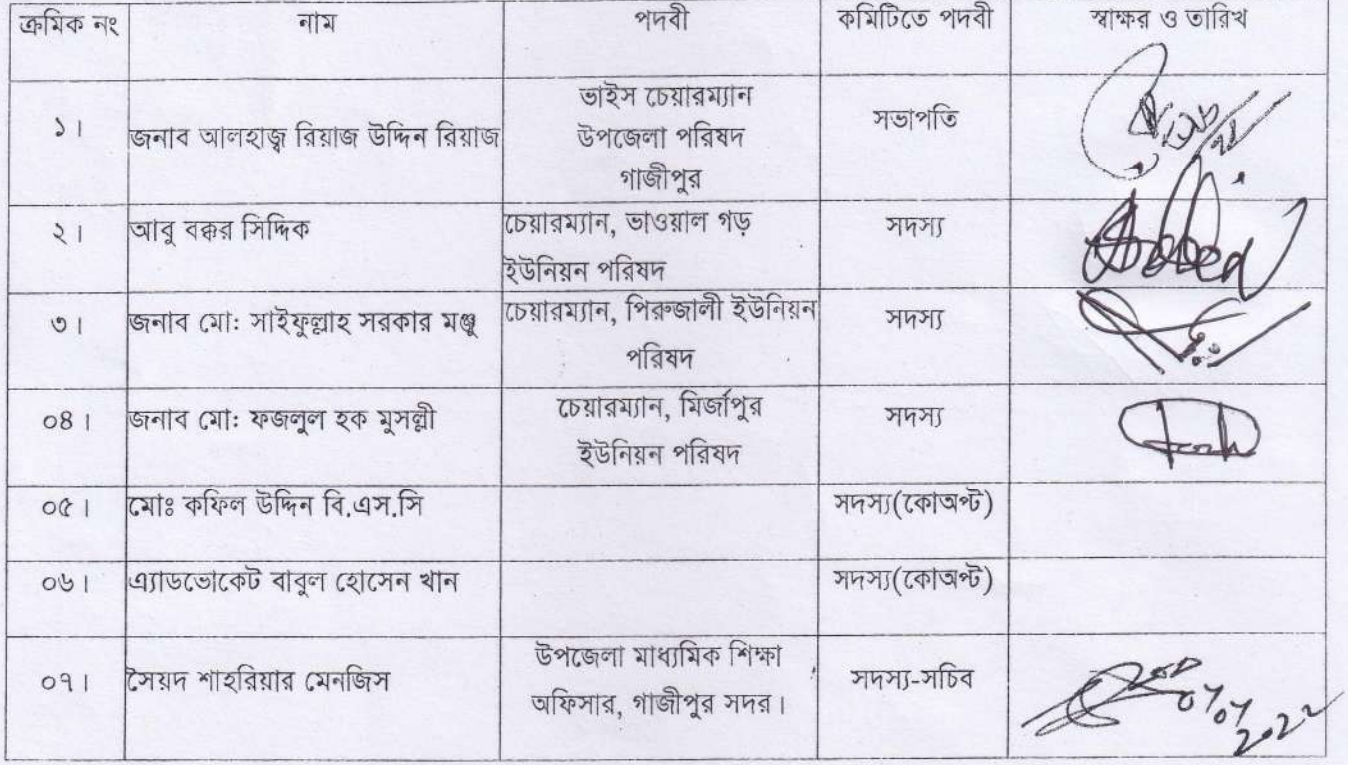 ক্রমিক নং নাম পদবী কমিটিতে পদবী স্বাক্ষর ও তারিখ
১। জনাব আলহাজ্ব রিয়াজ উদ্দিন রিয়াজ ভাইস চেয়ারম্যান সভাপতি
উপজেলা পরিষদ
গাজীপুর
২। আবু বক্কর সিদ্দিক চেয়ারম্যান, ভাওয়াল গড় সদস্য
ইউনিয়ন পরিষদ
৩। জনাব মো: সাইফুল্লাহ সরকার মঞ্জু চেয়ারম্যান, পিরুজালী ইউনিয়ন সদস্য
পরিষদ
০৪। জনাব মো: ফজলুল হক মুসল্লী চেয়ারম্যান, মির্জাপুর সদস্য
ইউনিয়ন পরিষদ
০৫। মোঃ কফিল উদ্দিন বি.এস.সি সদস্য(কোঅপ্ট)
০৬। এ্যাডভোকেট বাবুল হোসেন খান সদস্য(কোঅপ্ট)
০৭। সৈয়দ শাহরিয়ার মেনজিস উপজেলা মাধ্যমিক শিক্ষা সদস্য-সচিব
অফিসার, গাজীপুর সদর।
2022